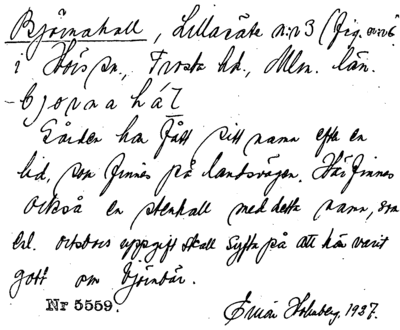 Björnahall, Lillasäte n:r 3 (fig. n:r 6
i Hörs sn., Frosta hd., Mlm. län.
- bjornahál
Gården har fått sitt namn efter en
lid, som finnes på landsvägen. Här finnes
också en stenhall med detta namn, som
enl. ortsbors uppgift skall syfta på att här varit
gott om björnbär.
Nr 5559. Ernst Holmberg. 1927.